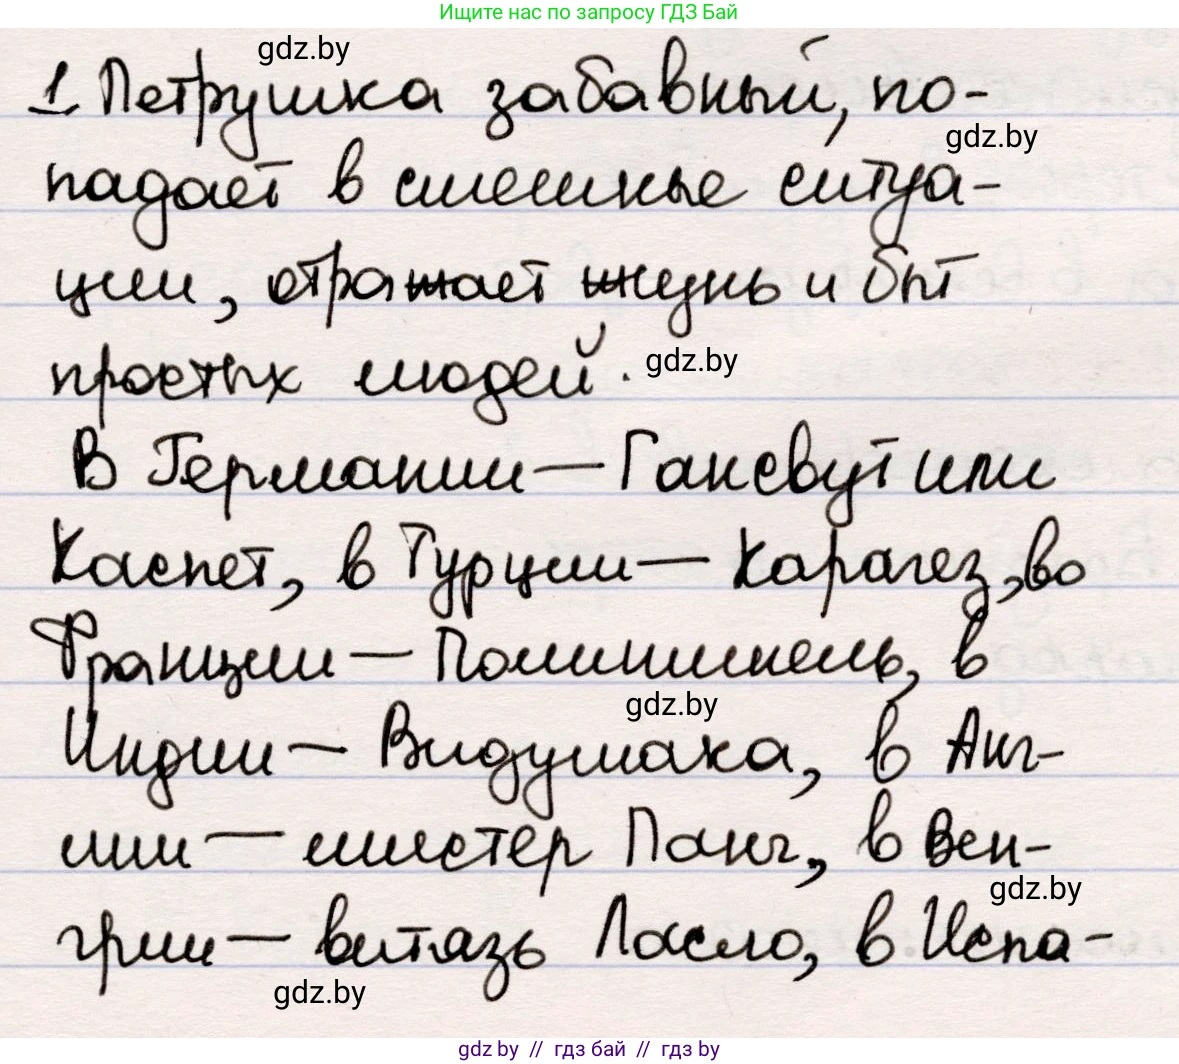 Ищите нас по запросу ГДЗ Бай
gdz.by
1. Петрушка забавный, по-
gdz.by
падает в смешные ситуа-
ции, отражает жизнь и быт
простых людей.
gdz.by
В Германии — Гансвут или
Каспет, в Турции — Карагез, во
Франции — Полишинель, в
gdz.by
Индии — Видушака, в Анг-
лии — мистер Панч, в Вен-
gdz.by
грии — витязь Ласло, в Испа-
gdz.by
gdz by // гдз бай // gdz by